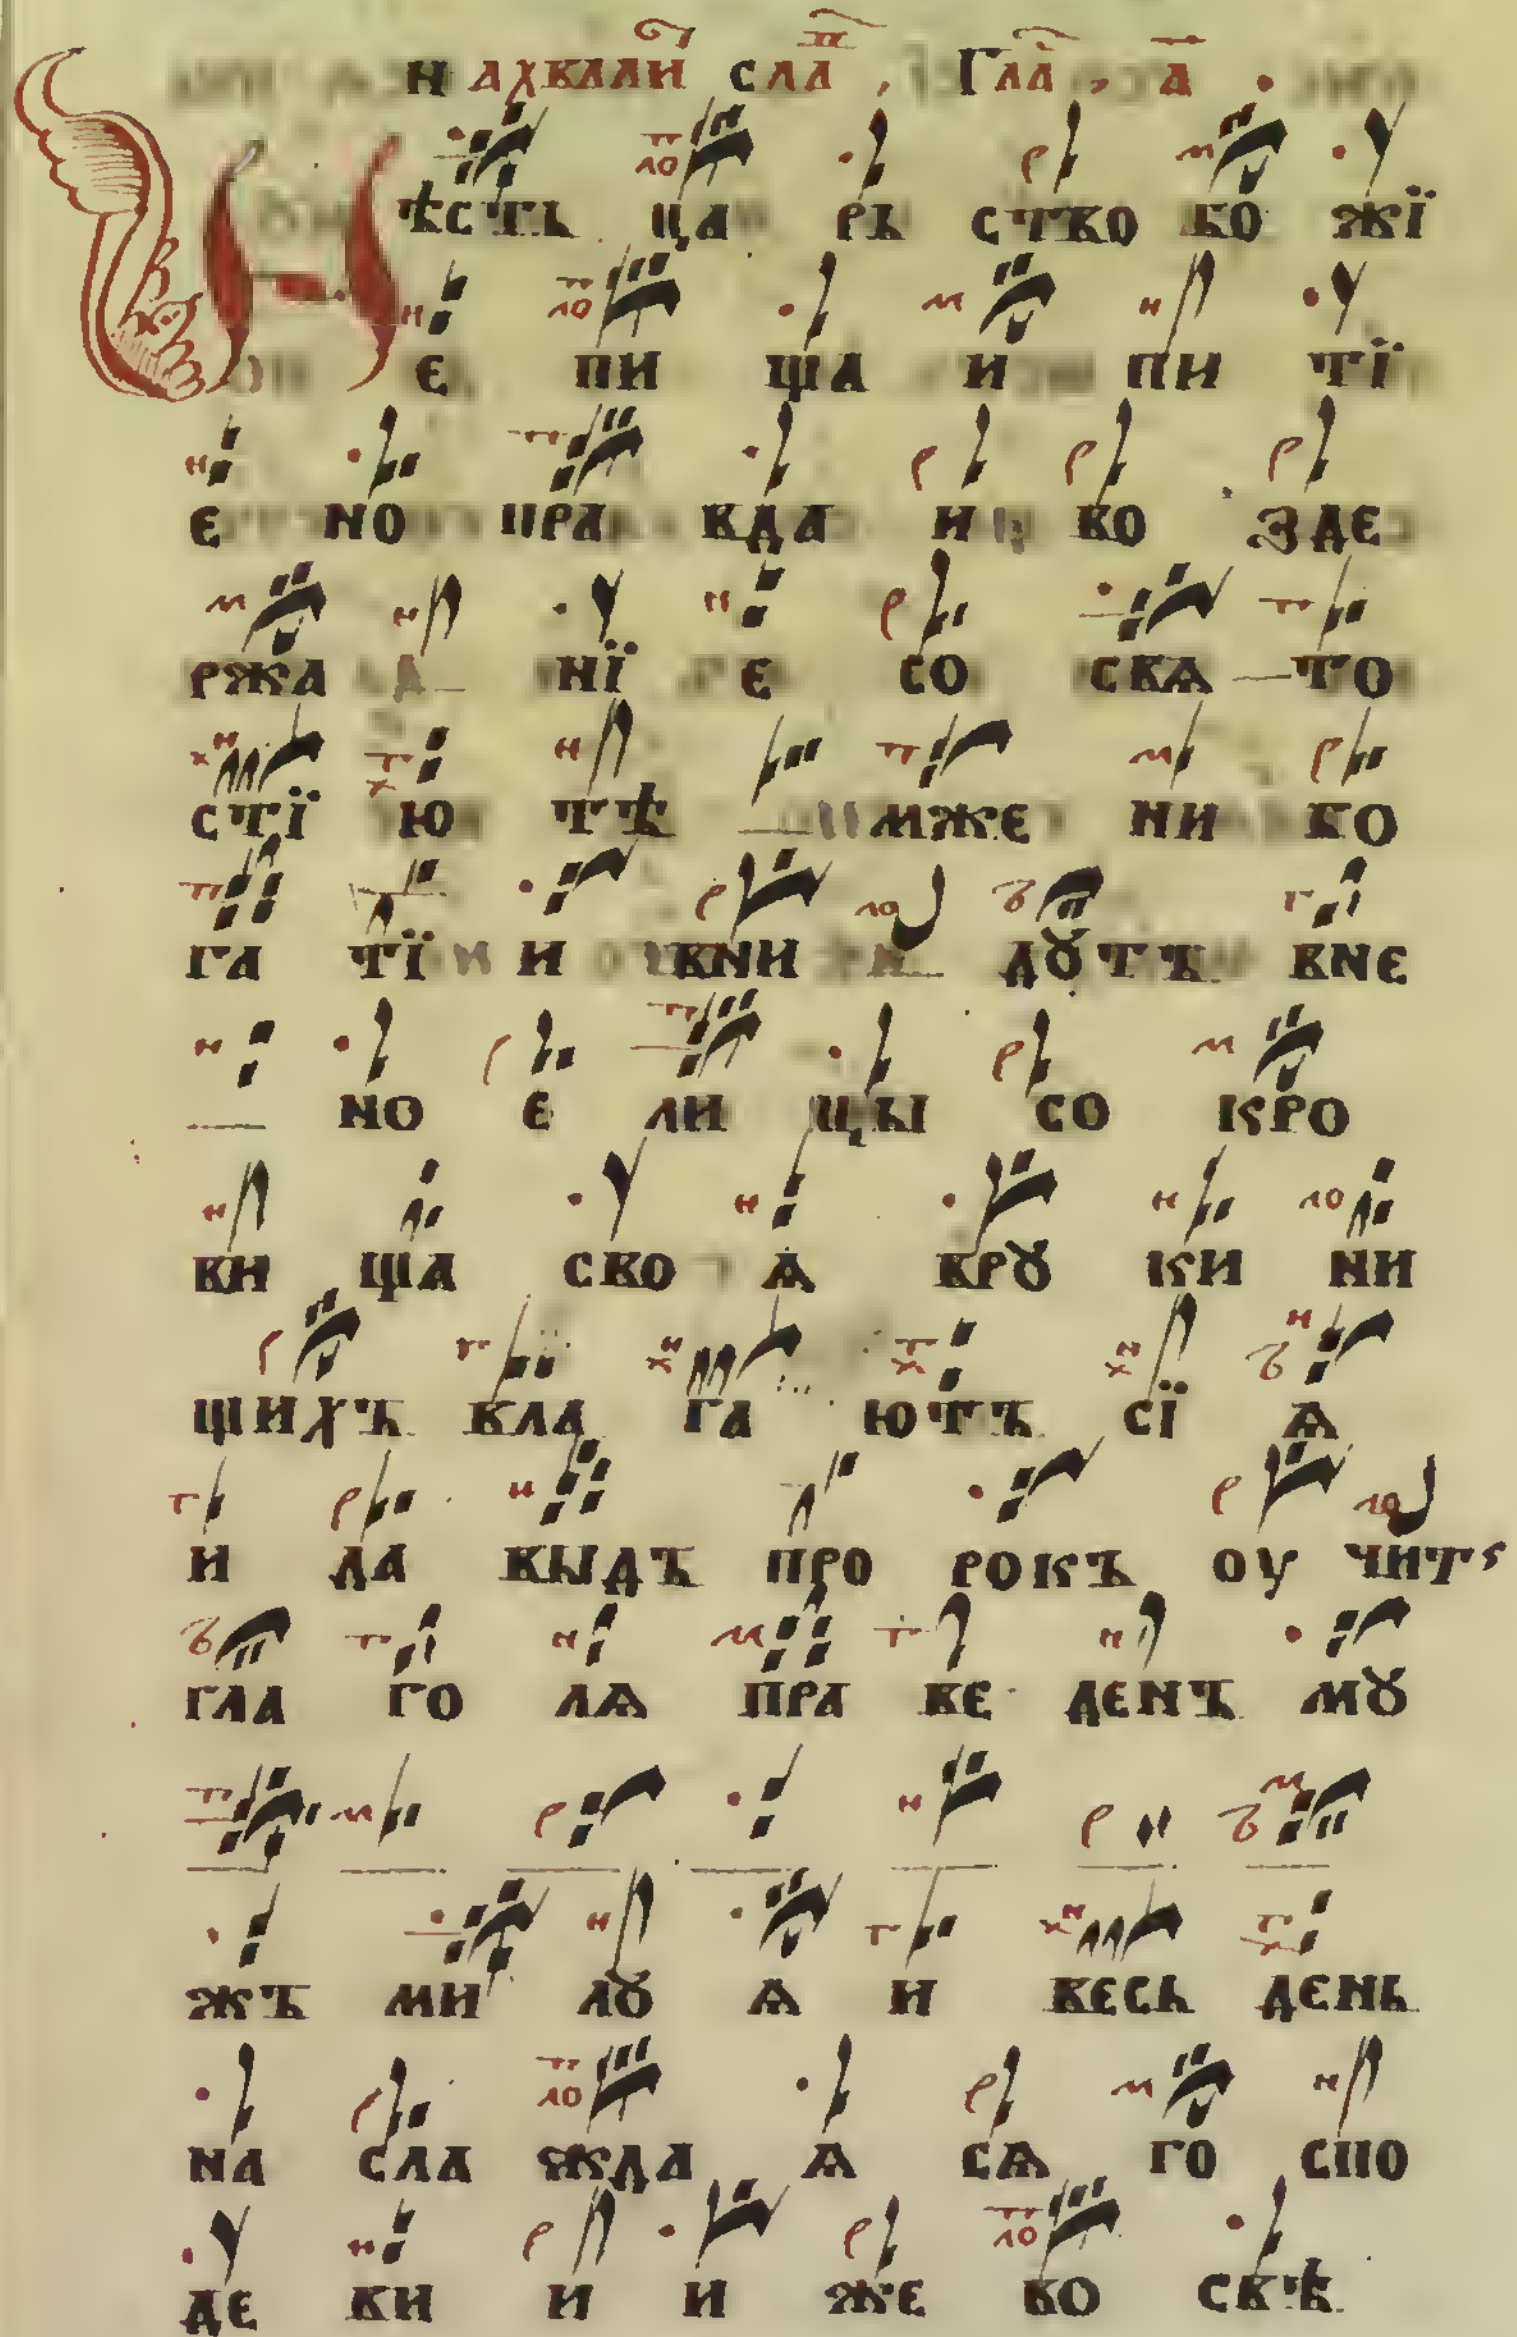 н а хвали́ сла , Гла̀ , а .
Нѣсть ца рь ство бо жї
е пи ща и пи тї
е но пра вда и во зде
ржа а нї е со свѧ — то
стї ю тѣ — мже ни бо
га тї и вни и дꙋтъ вне
— но е ли цы со кро
ви ща сво ѧ врꙋ ки ни
щихъ вла га ютъ сї ѧ
и да выдъ про рокъ оу читъ
гла го лѧ пра ве денъ мꙋ
жъ ми лꙋ ѧ и весь день
на сла жда ѧ сѧ го спо
де ви и и же во свѣ